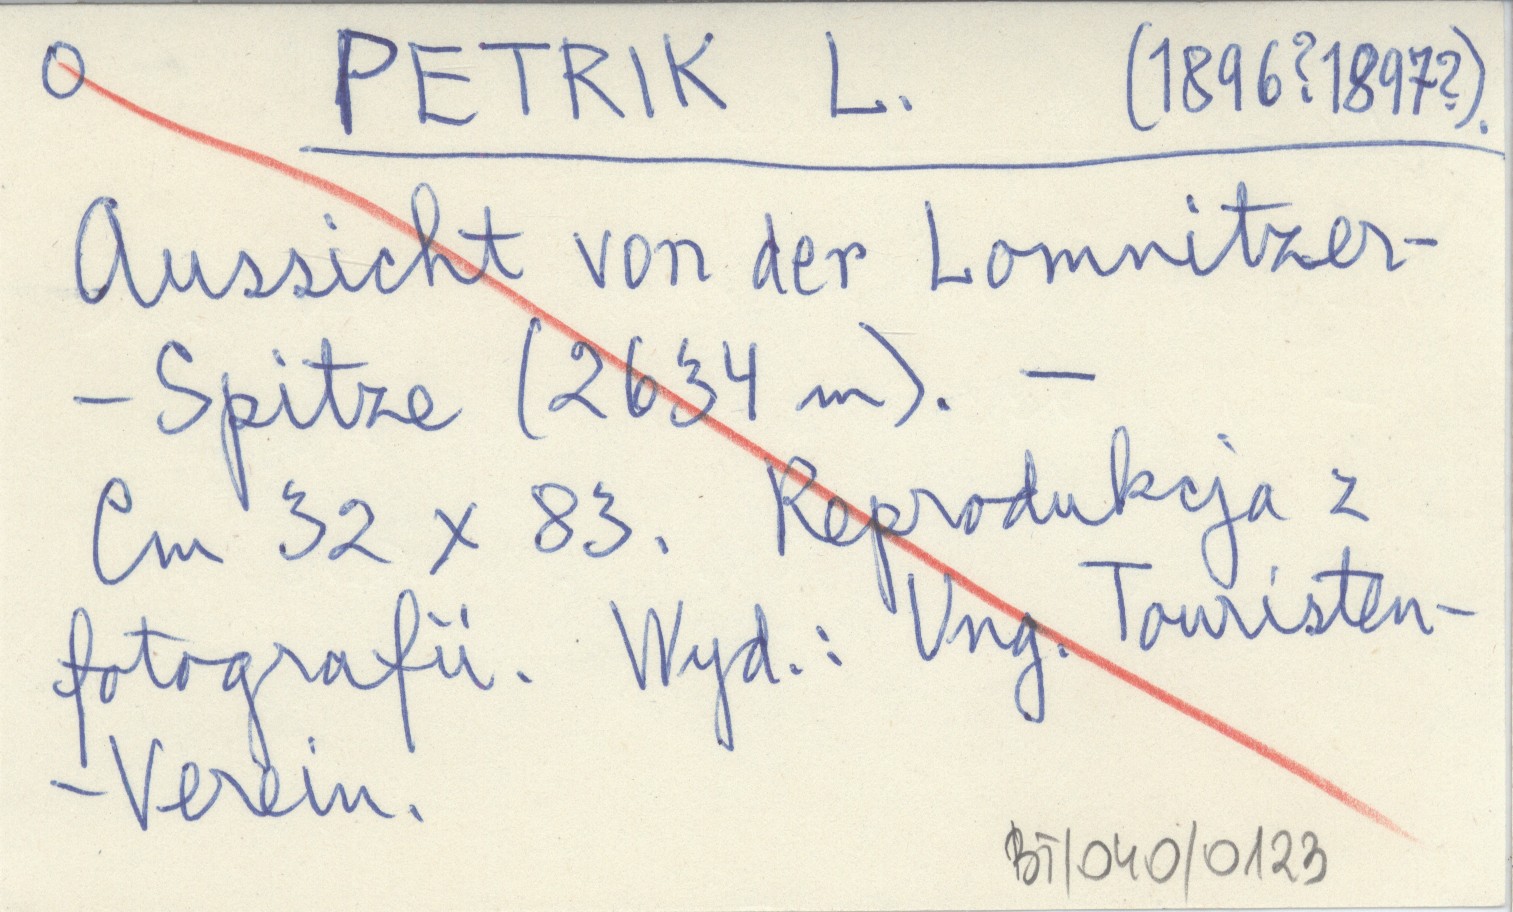 O PETRIK L. (1896?1897?).
Aussicht von der Lomnitzer-
-Spitze (2634 m). —
Cm 32 x 83. Reprodukcja z
fotografii. Wyd.: Ung. Touristen-
-Verein.
BT/040/0123